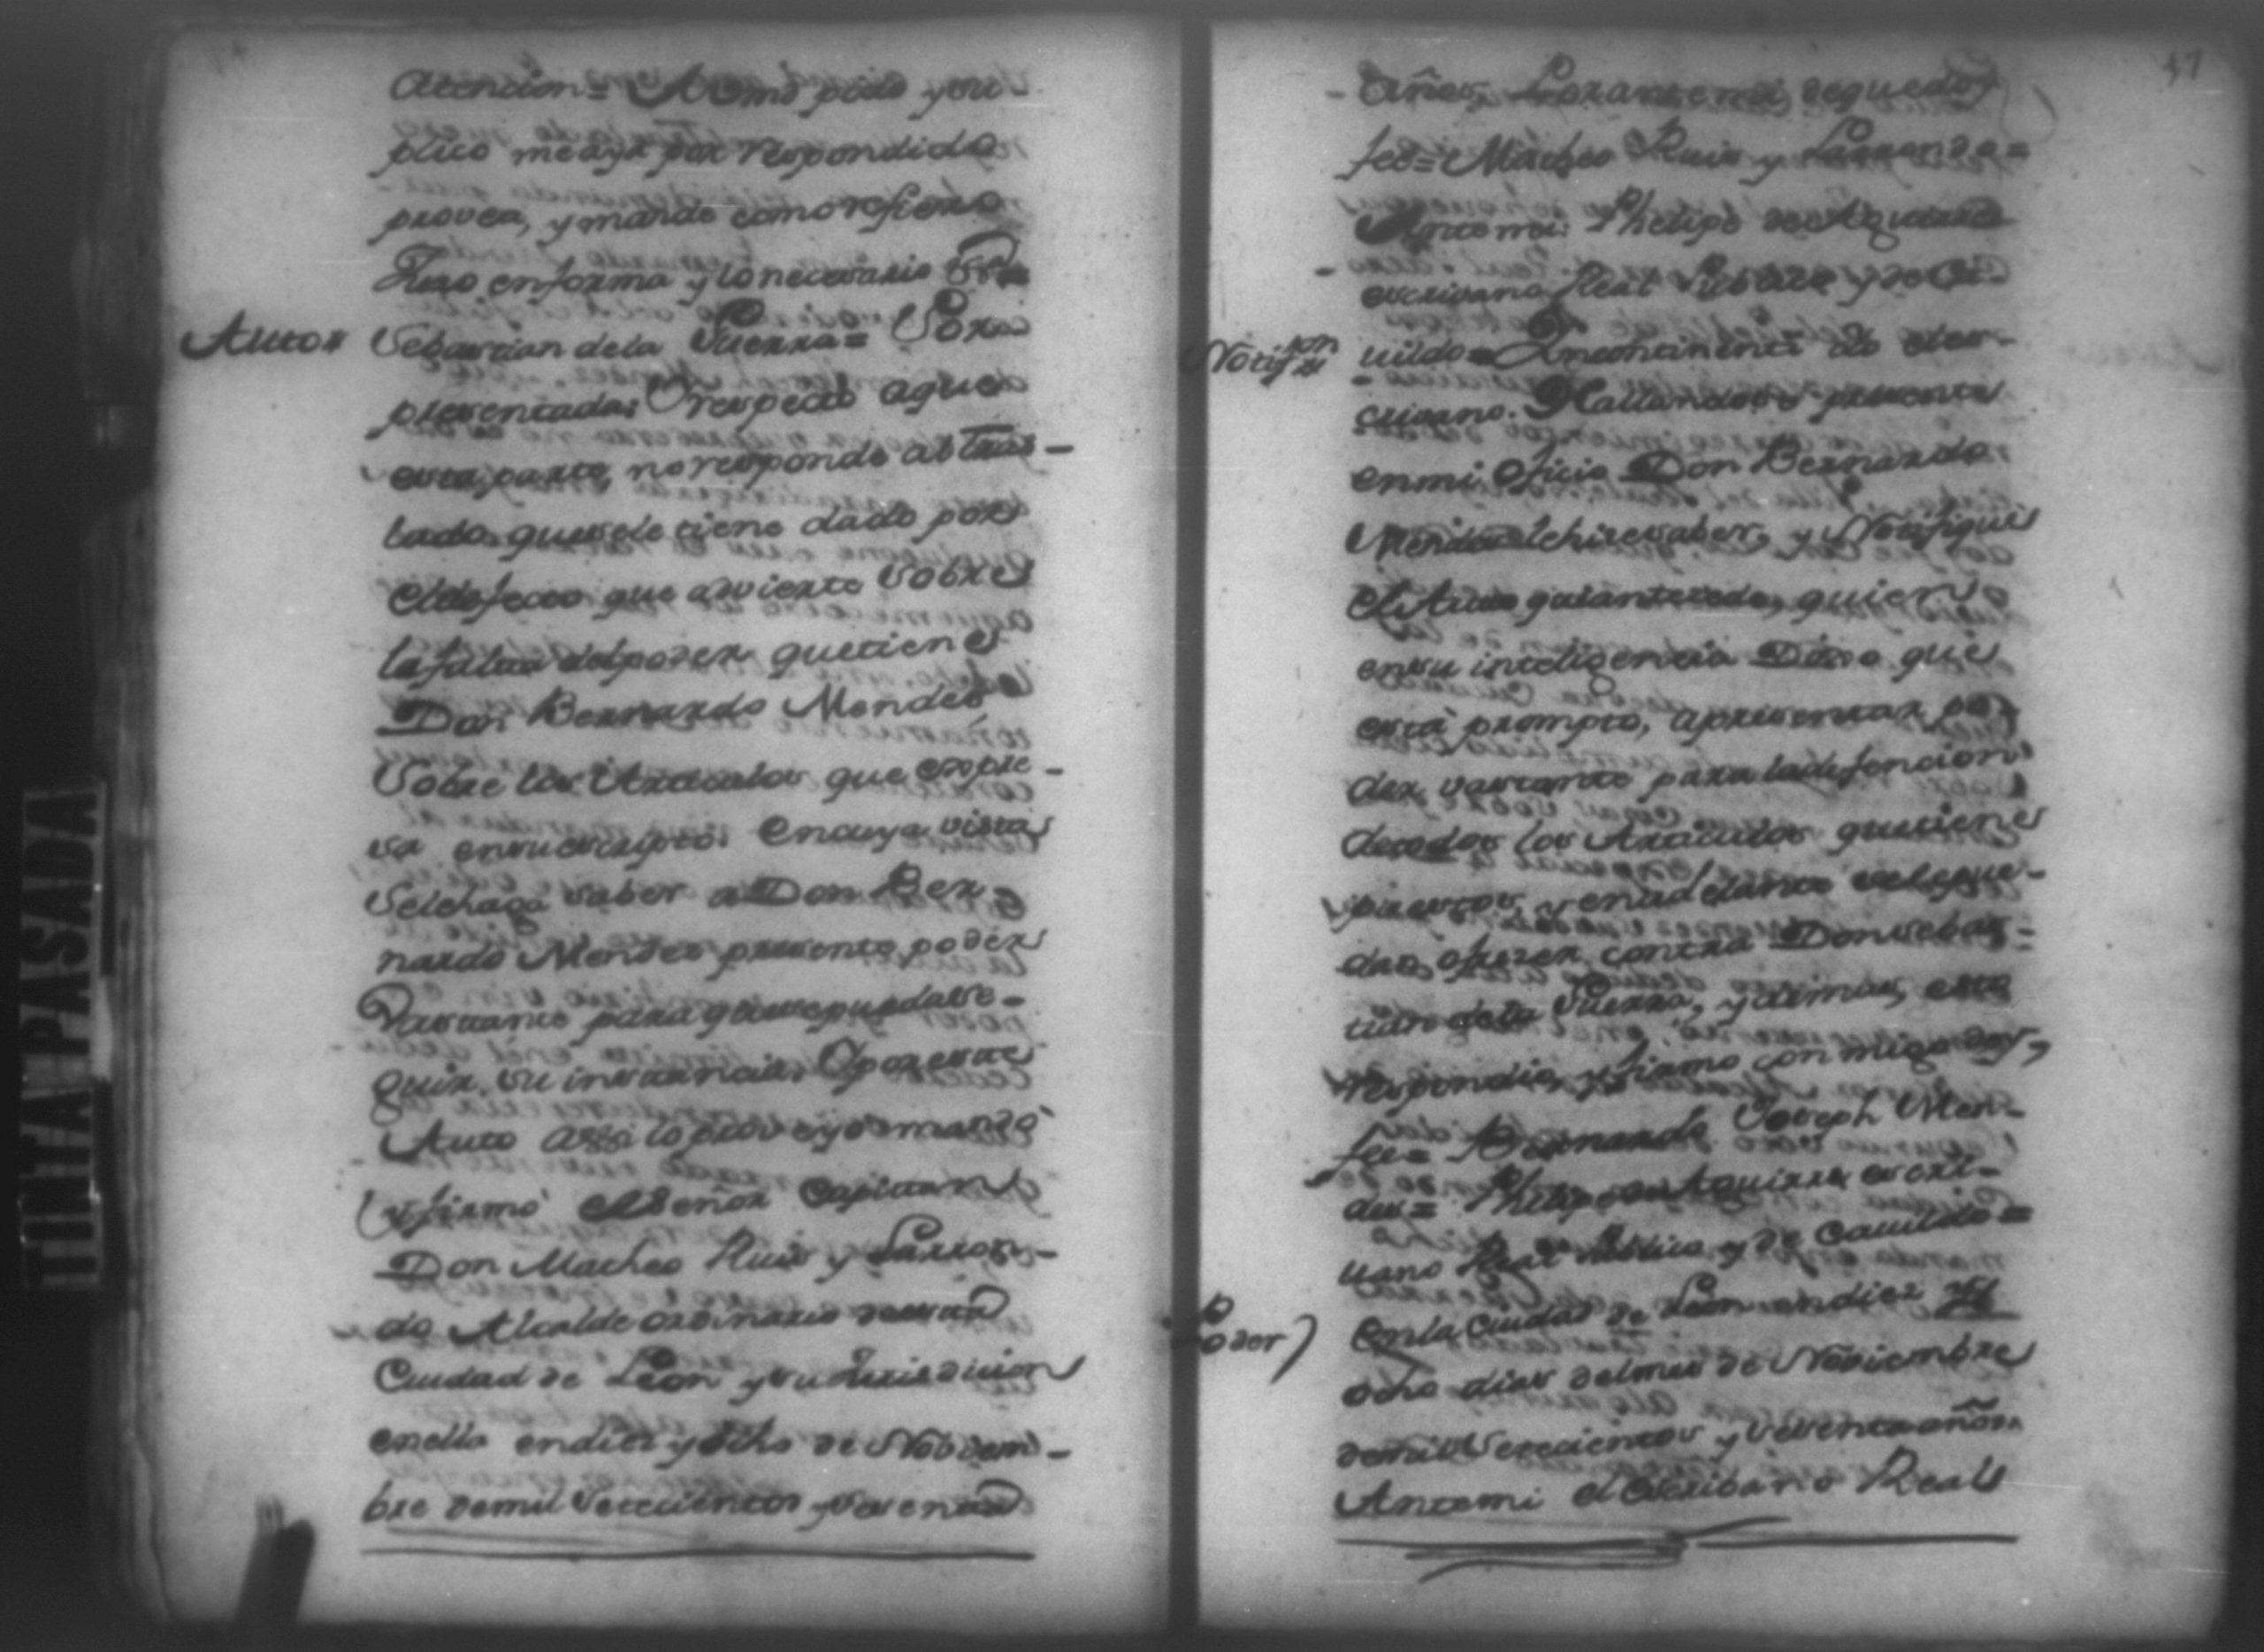 atencion= A Vmd pido y su
plico me aya por respondido
provea, y mande como refiero
Juro en forma y lo necesario &ra=
Autos Sebastian dela Guerra= Por
presentada: Y respecto aque
esta parte, no responde al tras-
lado que se le tiene dado por
el defecto que advierte sobre
la falta del poder que tiene
Don Bernardo Mendes
sobre los Articulos que expre-
sa en su escripto. En cuya vista
se le haga saber a Don Ber
nardo Mendes presente poder
Vastante para que se pueda se-
guir su instancia. Y por este
Auto assi lo proveyo mando
y firmó el Señor Capitan
Don Matheo Ruis y Larron-
do Alcalde ordinario de esta
Ciudad de Leon y su Jurisdicion
en ella en dies y ocho de Noviem-
bre de mil setecientos y sesenta
TILTA PASADA
47
años, por ante mi, de que doy
fee= Matheo Ruis y Larrondo=
Antemi: Phelipe de Aguirre
escrivano Real Publico y de Ca-
Notifzon uildo= Incontinenti Yo el es-
crivano. Hallandose presente
en mi oficio Don Bernardo
Mendes le hize saber, y Notifiqué
el Auto que antecede, quien
en su inteligencia Dixo que
está prompto, a presentar po
der vastante para la defencion
de todos los Articulos que tiene
puestos, y en adelante se le pue-
dan ofrezer contra Don Sebas-
tian dela Guerra, y demas, esto
respondio, y firmo con migo doy
fee= Bernardo Joseph Men-
des= Phelipe de Aguirre escri-
uano Real Publico y de Cauildo=
Poder) En la Ciudad de Leon en diez y
ocho dias del mes de Noviembre
de mil setecientos y sesenta años.
Antemi el escribano Real